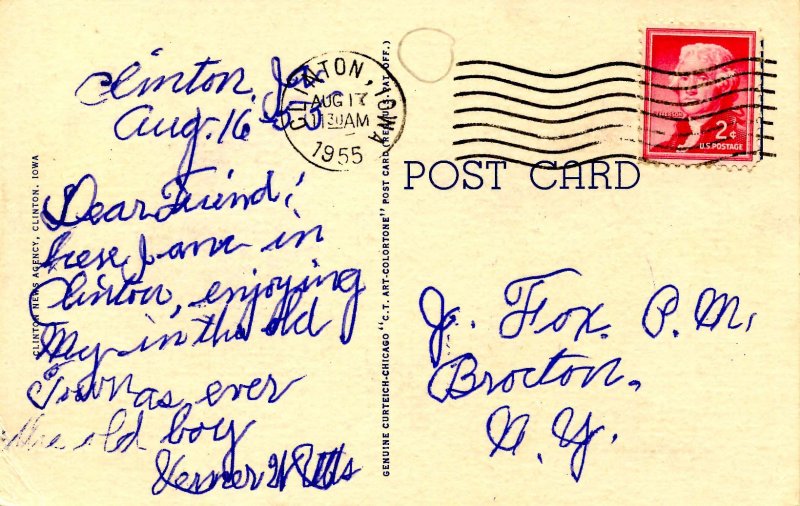 Clinton, Ia.
Aug. 16 - 55
Dear Friend;
here I am in
Clinton, enjoying
My in the old
Town as ever
the old boy
CLINTON, IOWA
AUG 17
1130AM
1955
2¢
U.S. POSTAGE
POST CARD
J. Fox. P. M.
Brocton,
N. Y.
CLINTON NEWS AGENCY, CLINTON, IOWA
GENUINE CURTEICH-CHICAGO "C.T. ART-COLORTONE" POST CARD (REG. U.S. PAT. OFF.)